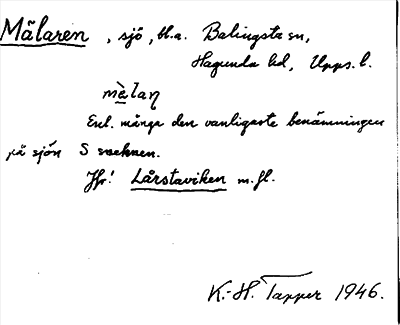 Mälaren, sjö, bl.a. Balingsta sn,
Hagunda hd, Upps. l.
mèlaṇ
Enl. många den vanligaste benämningen
på sjön S socknen.
Jfr! Lårstaviken m.fl.
K.-H. Tapper 1946.